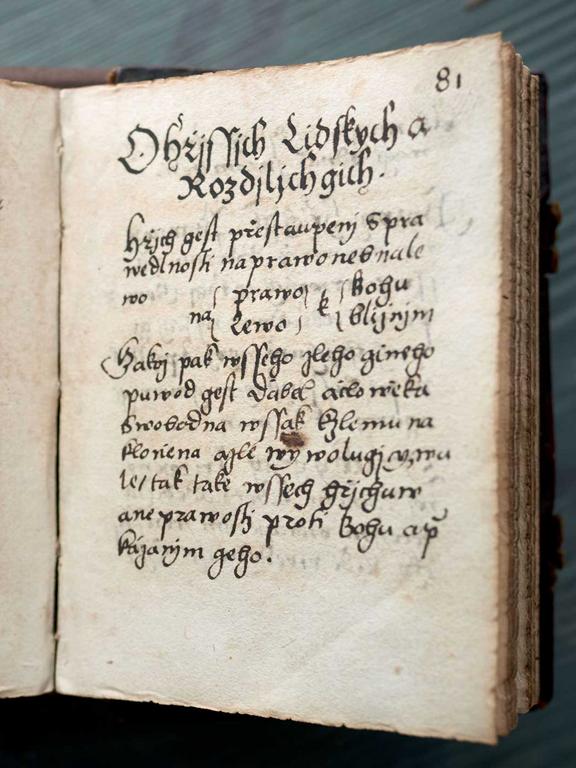 81
O hřjssich Lidskych a
Rozdjljch gich.
Hřjch gest přestaupenj Spra
wedlnosti na prawo neb na le
wo na { prawo } k { Bohu
lewo bližnjm
Gakož pak wsseho zleho gineho
puwod gest Dábel a člowěka
Swobodna wssak k zlemu na
kloněna a zle wywolugjcy wu
le / tak take wssech hřjchuw
a neprawostj proti Bohu a př
kázanjm geho.